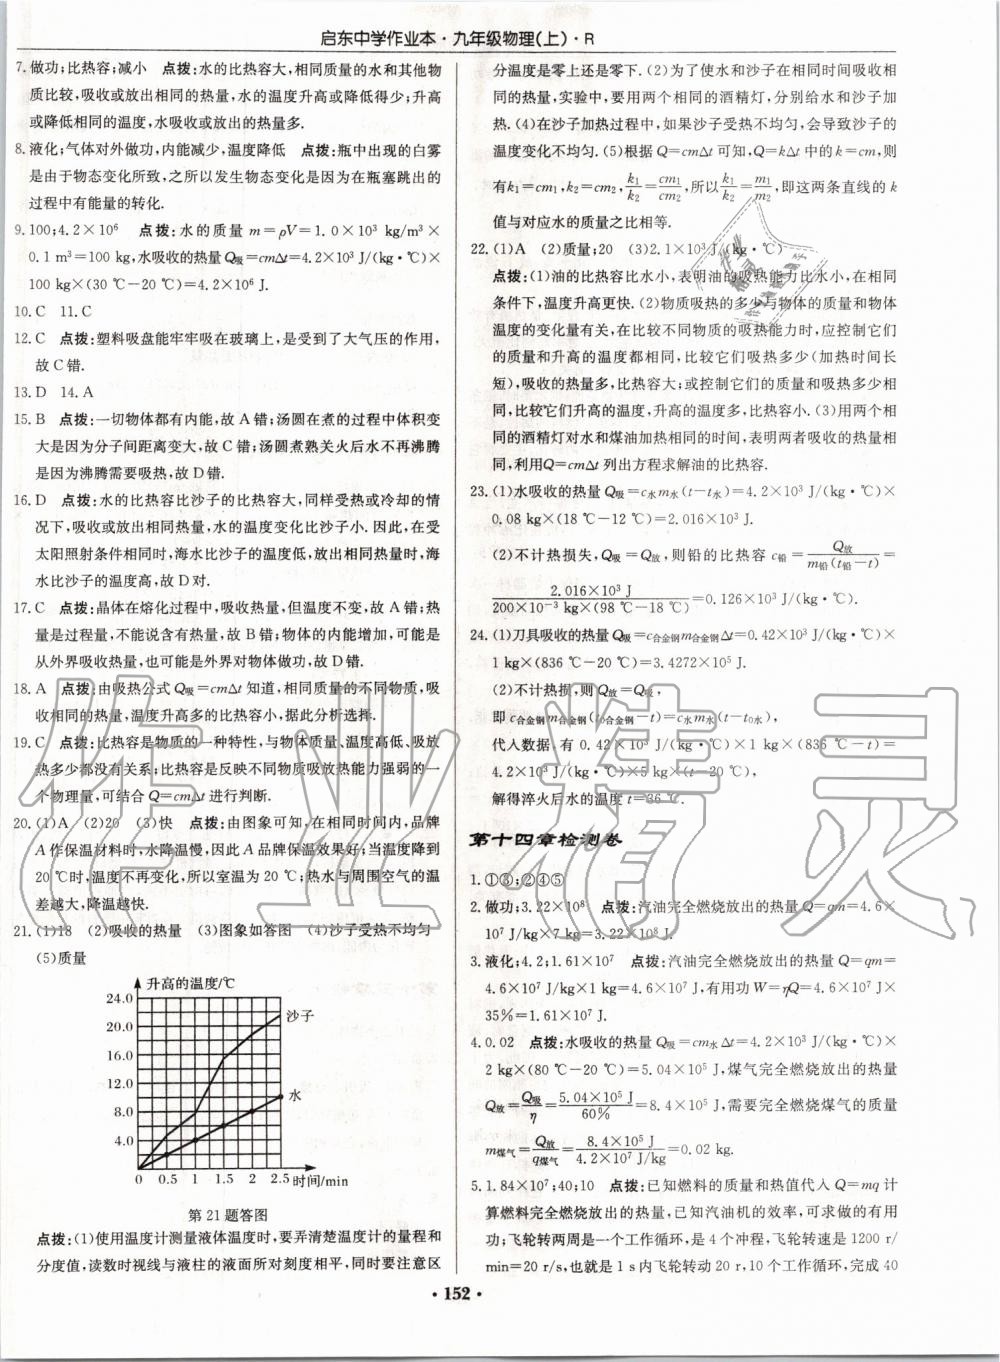 启东中学作业本·九年级物理(上)·R
7.做功;比热容;减小 点拨:水的比热容大,相同质量的水和其他物
质比较,吸收或放出相同的热量,水的温度升高或降低得少;升高
或降低相同的温度,水吸收或放出的热量多.
8.液化;气体对外做功,内能减少,温度降低 点拨:瓶中出现的白雾
是由于物态变化所致,之所以发生物态变化是因为在瓶塞跳出的
过程中有能量的转化.
9.100;4.2×10⁶ 点拨:水的质量 m=ρV=1.0×10³ kg/m³×
0.1 m³=100 kg,水吸收的热量Q吸=cmΔt=4.2×10³ J/(kg·℃)×
100 kg×(30 ℃-20 ℃)=4.2×10⁶ J.
10.C 11.C
12.C 点拨:塑料吸盘能牢牢吸在玻璃上,是受到了大气压的作用,
故C错.
13.D 14.A
15.B 点拨:一切物体都有内能,故A错;汤圆在煮的过程中体积变
大是因为分子间距离变大,故C错;汤圆煮熟关火后水不再沸腾
是因为沸腾需要吸热,故D错.
16.D 点拨:水的比热容比沙子的比热容大,同样受热或冷却的情
况下,吸收或放出相同热量,水的温度变化比沙子小.因此,在受
太阳照射条件相同时,海水比沙子的温度低,放出相同热量时,海
水比沙子的温度高,故D对.
17.C 点拨:晶体在熔化过程中,吸收热量,但温度不变,故A错;热
量是过程量,不能说含有热量,故B错;物体的内能增加,可能是
从外界吸收热量,也可能是外界对物体做功,故D错.
18.A 点拨:由吸热公式Q吸=cmΔt知道,相同质量的不同物质,吸
收相同的热量,温度升高多的比热容小,据此分析选择.
19.C 点拨:比热容是物质的一种特性,与物体质量、温度高低、吸放
热多少都没有关系;比热容是反映不同物质吸放热能力强弱的一
个物理量,可结合Q=cmΔt进行判断.
20.(1)A (2)20 (3)快 点拨:由图象可知,在相同时间内,品牌
A作保温材料时,水降温慢,因此A品牌保温效果好;当温度降到
20 ℃时,温度不再变化,所以室温为20 ℃;热水与周围空气的温
差越大,降温越快.
21.(1)18 (2)吸收的热量 (3)图象如答图 (4)沙子受热不均匀
(5)质量
升高的温度/℃
24.0
20.0
16.0
12.0
8.0
4.0
沙子
水
0 0.5 1 1.5 2 2.5 时间/min
第21题答图
点拨:(1)使用温度计测量液体温度时,要弄清楚温度计的量程和
分度值,读数时视线与液柱的液面所对刻度相平,同时要注意区
分温度是零上还是零下.(2)为了使水和沙子在相同时间吸收相
同的热量,实验中,要用两个相同的酒精灯,分别给水和沙子加
热.(4)在沙子加热过程中,如果沙子受热不均匀,会导致沙子的
温度变化不均匀.(5)根据Q=cmΔt可知,Q=kΔt中的k=cm,则
有k₁=cm₁,k₂=cm₂,k₁/k₂=cm₁/cm₂,所以k₁/k₂=m₁/m₂,即这两条直线的k
值与对应水的质量之比相等.
22.(1)A (2)质量;20 (3)2.1×10³ J/(kg·℃)
点拨:(1)油的比热容比水小,表明油的吸热能力比水小,在相同
条件下,温度升高更快.(2)物质吸热的多少与物体的质量和物体
温度的变化量有关,在比较不同物质的吸热能力时,应控制它们
的质量和升高的温度都相同,比较它们吸热多少(加热时间长
短),吸收的热量多,比热容大;或控制它们的质量和吸热多少相
同,比较它们升高的温度,升高的温度多,比热容小.(3)用两个相
同的酒精灯对水和煤油加热相同的时间,表明两者吸收的热量相
同,利用Q=cmΔt列出方程求解油的比热容.
23.(1)水吸收的热量Q吸=c水m水(t-t水)=4.2×10³ J/(kg·℃)×
0.08 kg×(18 ℃-12 ℃)=2.016×10³ J.
(2)不计热损失,Q吸=Q放,则铅的比热容 c铅=Q放/m铅(t铅-t)=
2.016×10³ J/200×10⁻³ kg×(98 ℃-18 ℃)=0.126×10³ J/(kg·℃).
24.(1)刀具吸收的热量Q吸=c合金钢m合金钢Δt=0.42×10³ J/(kg·℃)×
1 kg×(836 ℃-20 ℃)=3.4272×10⁵ J.
(2)不计热损,则Q放=Q吸,
即c合金钢m合金钢(t0合金钢-t)=c水m水(t-t0水),
代入数据,有0.42×10³ J/(kg·℃)×1 kg×(836 ℃-t)=
4.2×10³ J/(kg·℃)×5 kg×(t-20 ℃),
解得淬火后水的温度t=36 ℃.
第十四章检测卷
1.①③;②④⑤
2.做功;3.22×10⁸ 点拨:汽油完全燃烧放出的热量Q=qm=4.6×
10⁷ J/kg×7 kg=3.22×10⁸ J.
3.液化;4.2;1.61×10⁷ 点拨:汽油完全燃烧放出的热量Q=qm=
4.6×10⁷ J/kg×1 kg=4.6×10⁷ J,有用功W=ηQ=4.6×10⁷ J×
35%=1.61×10⁷ J.
4.0.02 点拨:水吸收的热量Q吸=cm水Δt=4.2×10³ J/(kg·℃)×
2 kg×(80 ℃-20 ℃)=5.04×10⁵ J,煤气完全燃烧放出的热量
Q放=Q吸/η=5.04×10⁵ J/60%=8.4×10⁵ J,需要完全燃烧煤气的质量
m煤气=Q放/q煤气=8.4×10⁵ J/4.2×10⁷ J/kg=0.02 kg.
5.1.84×10⁷;40;10 点拨:已知燃料的质量和热值代入Q=mq计
算燃料完全燃烧放出的热量,已知汽油机的效率,可求做的有用
功;飞轮转两周是一个工作循环,是4个冲程,飞轮转速是1200 r/
min=20 r/s,也就是1 s内飞轮转动20 r,10个工作循环,完成40
·152·
作业精灵